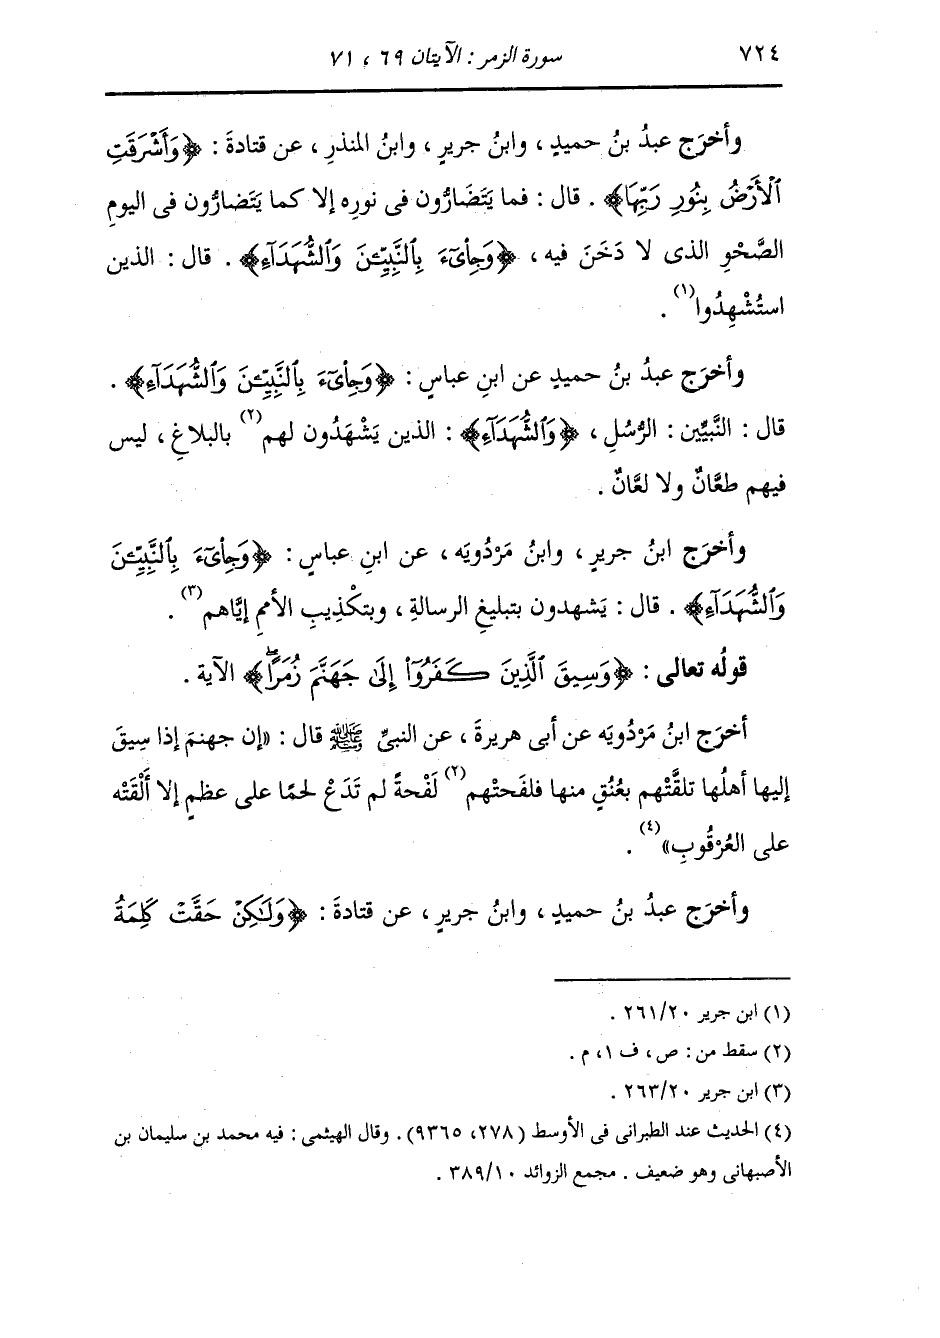 ٧٢٤
سورة الزمر : الآيتان ٦٩ ، ٧١
وأخرَج عبدُ بنُ حميدٍ ، وابنُ جريرٍ ، وابنُ المنذرِ ، عن قتادةَ : ﴿وَأَشْرَقَتِ
ٱلْأَرْضُ بِنُورِ رَبِّهَا﴾ . قال : فما يَتَضَارُّون فى نورِه إلا كما يَتَضارُّون فى اليومِ
الصَّحْوِ الذى لا دَخَنَ فيه ، ﴿وَجِاْىٓءَ بِٱلنَّبِيِّـۧنَ وَٱلشُّهَدَآءِ﴾ . قال : الذين
استُشْهِدُوا(١) .
وأخرَج عبدُ بنُ حميدٍ عن ابنِ عباسٍ : ﴿وَجِاْىٓءَ بِٱلنَّبِيِّـۧنَ وَٱلشُّهَدَآءِ﴾ .
قال : النَّبِيِّين : الرُّسُلِ ، ﴿وَٱلشُّهَدَآءِ﴾ : الذين يَشْهَدُون لهم(٢) بالبلاغِ ، ليس
فيهم طعَّانٌ ولا لعَّانٌ .
وأخرَج ابنُ جريرٍ ، وابنُ مَرْدُويَه ، عن ابنِ عباسٍ : ﴿وَجِاْىٓءَ بِٱلنَّبِيِّـۧنَ
وَٱلشُّهَدَآءِ﴾ . قال : يَشهدون بتبليغِ الرسالةِ ، وبتكْذِيبِ الأممِ إيَّاهم(٣) .
قولُه تعالى : ﴿وَسِيقَ ٱلَّذِينَ كَفَرُوٓاْ إِلَىٰ جَهَنَّمَ زُمَرًاۖ﴾ الآية .
أخرَج ابنُ مَرْدُويَه عن أبى هريرةَ ، عن النبىِّ ﷺ قال : «إن جهنمَ إذا سِيقَ
إليها أهلُها تلقَّتْهم بعُنُقٍ منها فلفَحتْهم(٢) لَفْحةً لم تَدَعْ لحمًا على عظمٍ إلا أَلْقَتْه
على العُرْقُوبِ»(٤) .
وأخرَج عبدُ بنُ حميدٍ ، وابنُ جريرٍ ، عن قتادةَ : ﴿وَلَٰكِنْ حَقَّتْ كَلِمَةُ
(١) ابن جرير ٢٠/٢٦١ .
(٢) سقط من : ص ، ف ١، م .
(٣) ابن جرير ٢٠/٢٦٣ .
(٤) الحديث عند الطبرانى فى الأوسط (٢٧٨، ٩٣٦٥) . وقال الهيثمى : فيه محمد بن سليمان بن
الأصبهانى وهو ضعيف . مجمع الزوائد ١٠/٣٨٩ .